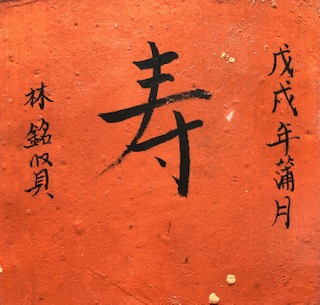 戊戌年蒲月
寿
林銘賢